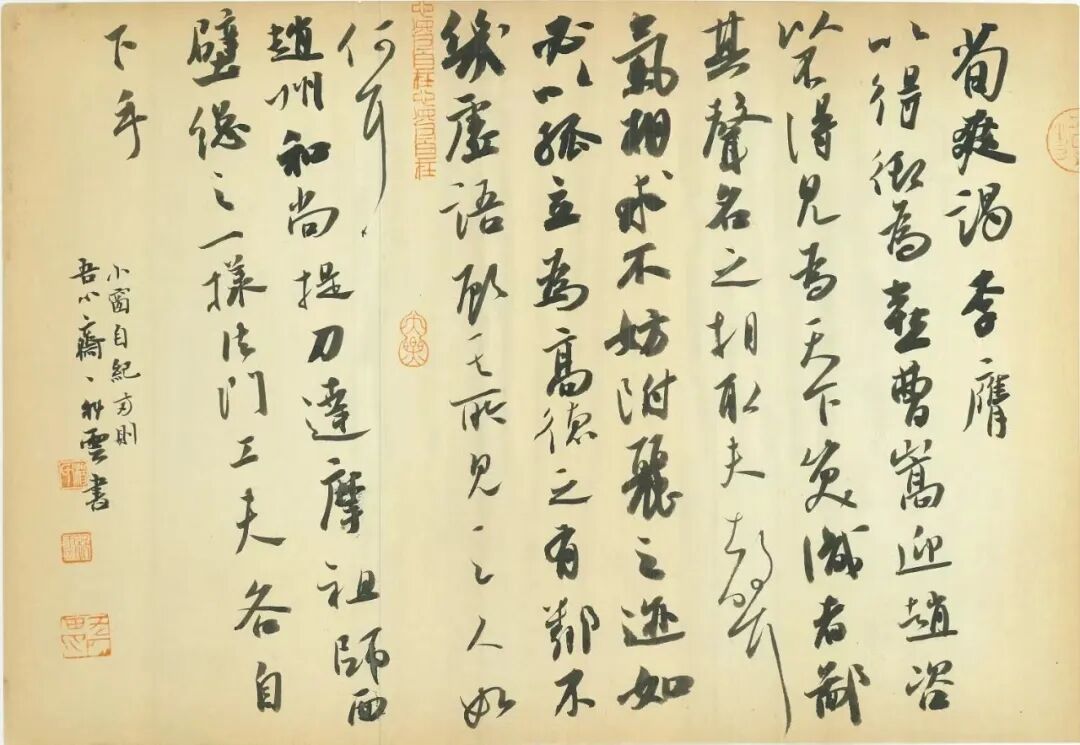 荀爽謁李膺
以得御為喜曹嵩迎趙咨
以不得見為天下笑識者鄙
其聲名之相取夫聲
氣相求不妨附麗之迹如
必以孤立為高德之有鄰不
幾虛語顧其所見之人如
何耳
趙州和尚提刀達摩祖師面
壁總之一樣法門工夫各自
下手
小窗自紀兩則
吾心齋雲書